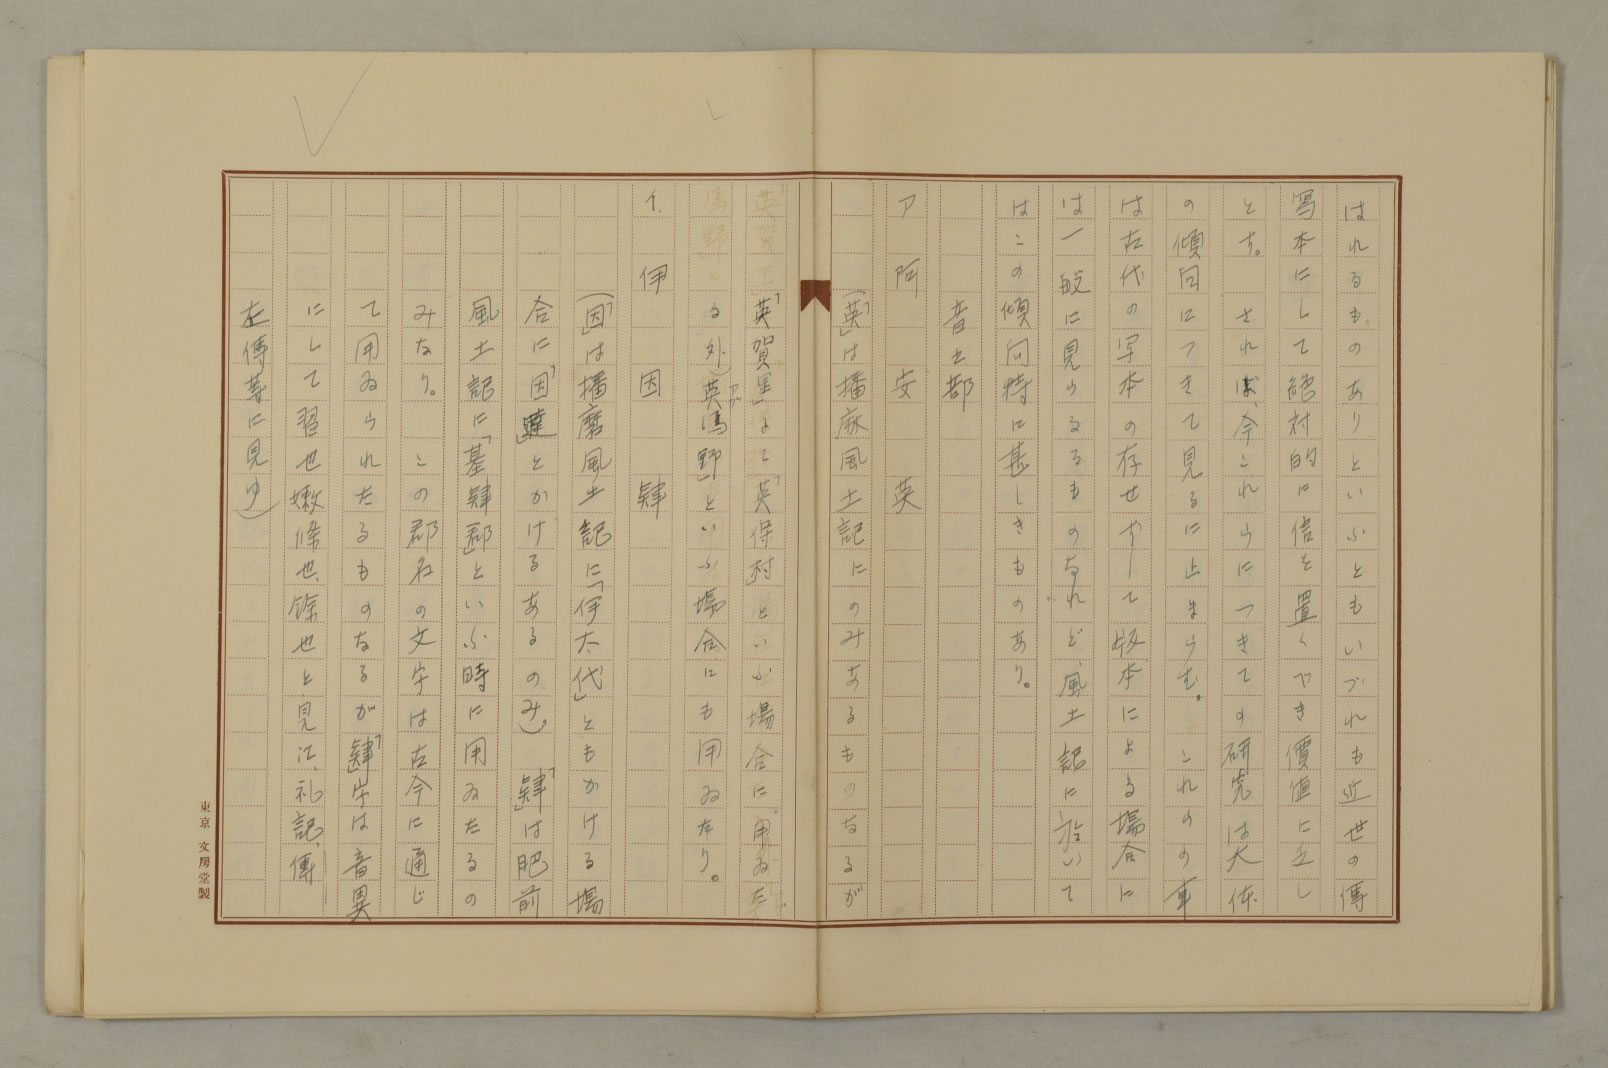 はれるものありといふともいづれも近世の傳
寫本にして絶対的に信を置くべき價値に乏し
とす。されば、今これらにつきての研究は大体
の傾向につきて見るに止まらむ。これのの事
は古代の写本の存せずして版本による場合に
は一般に見らるるものなれど、風土記に於いて
はこの傾向特に甚しきものあり。
音之部
ア 阿 安 英
(「英」は播麻風土記にのみあるものなるが
「英賀里」よて「英保村」といふ場合に用ゐた
る外)英馬野」といふ場合にも用ゐたり。
イ. 伊 因 肄
(「因」は播磨風土記に「伊太代」ともかける場
合に「因達」とかけるあるのみ)「肄」は肥前
風土記に「基肄郡」といふ時に用ゐたるの
みなり。この郡名の文字は古今に通じ
て用ゐられたるものなるが「肄」字は音異
にして習也嫩條也、餘也と見江、礼記、傳
左傳等に見ゆ)
東京 文房堂製